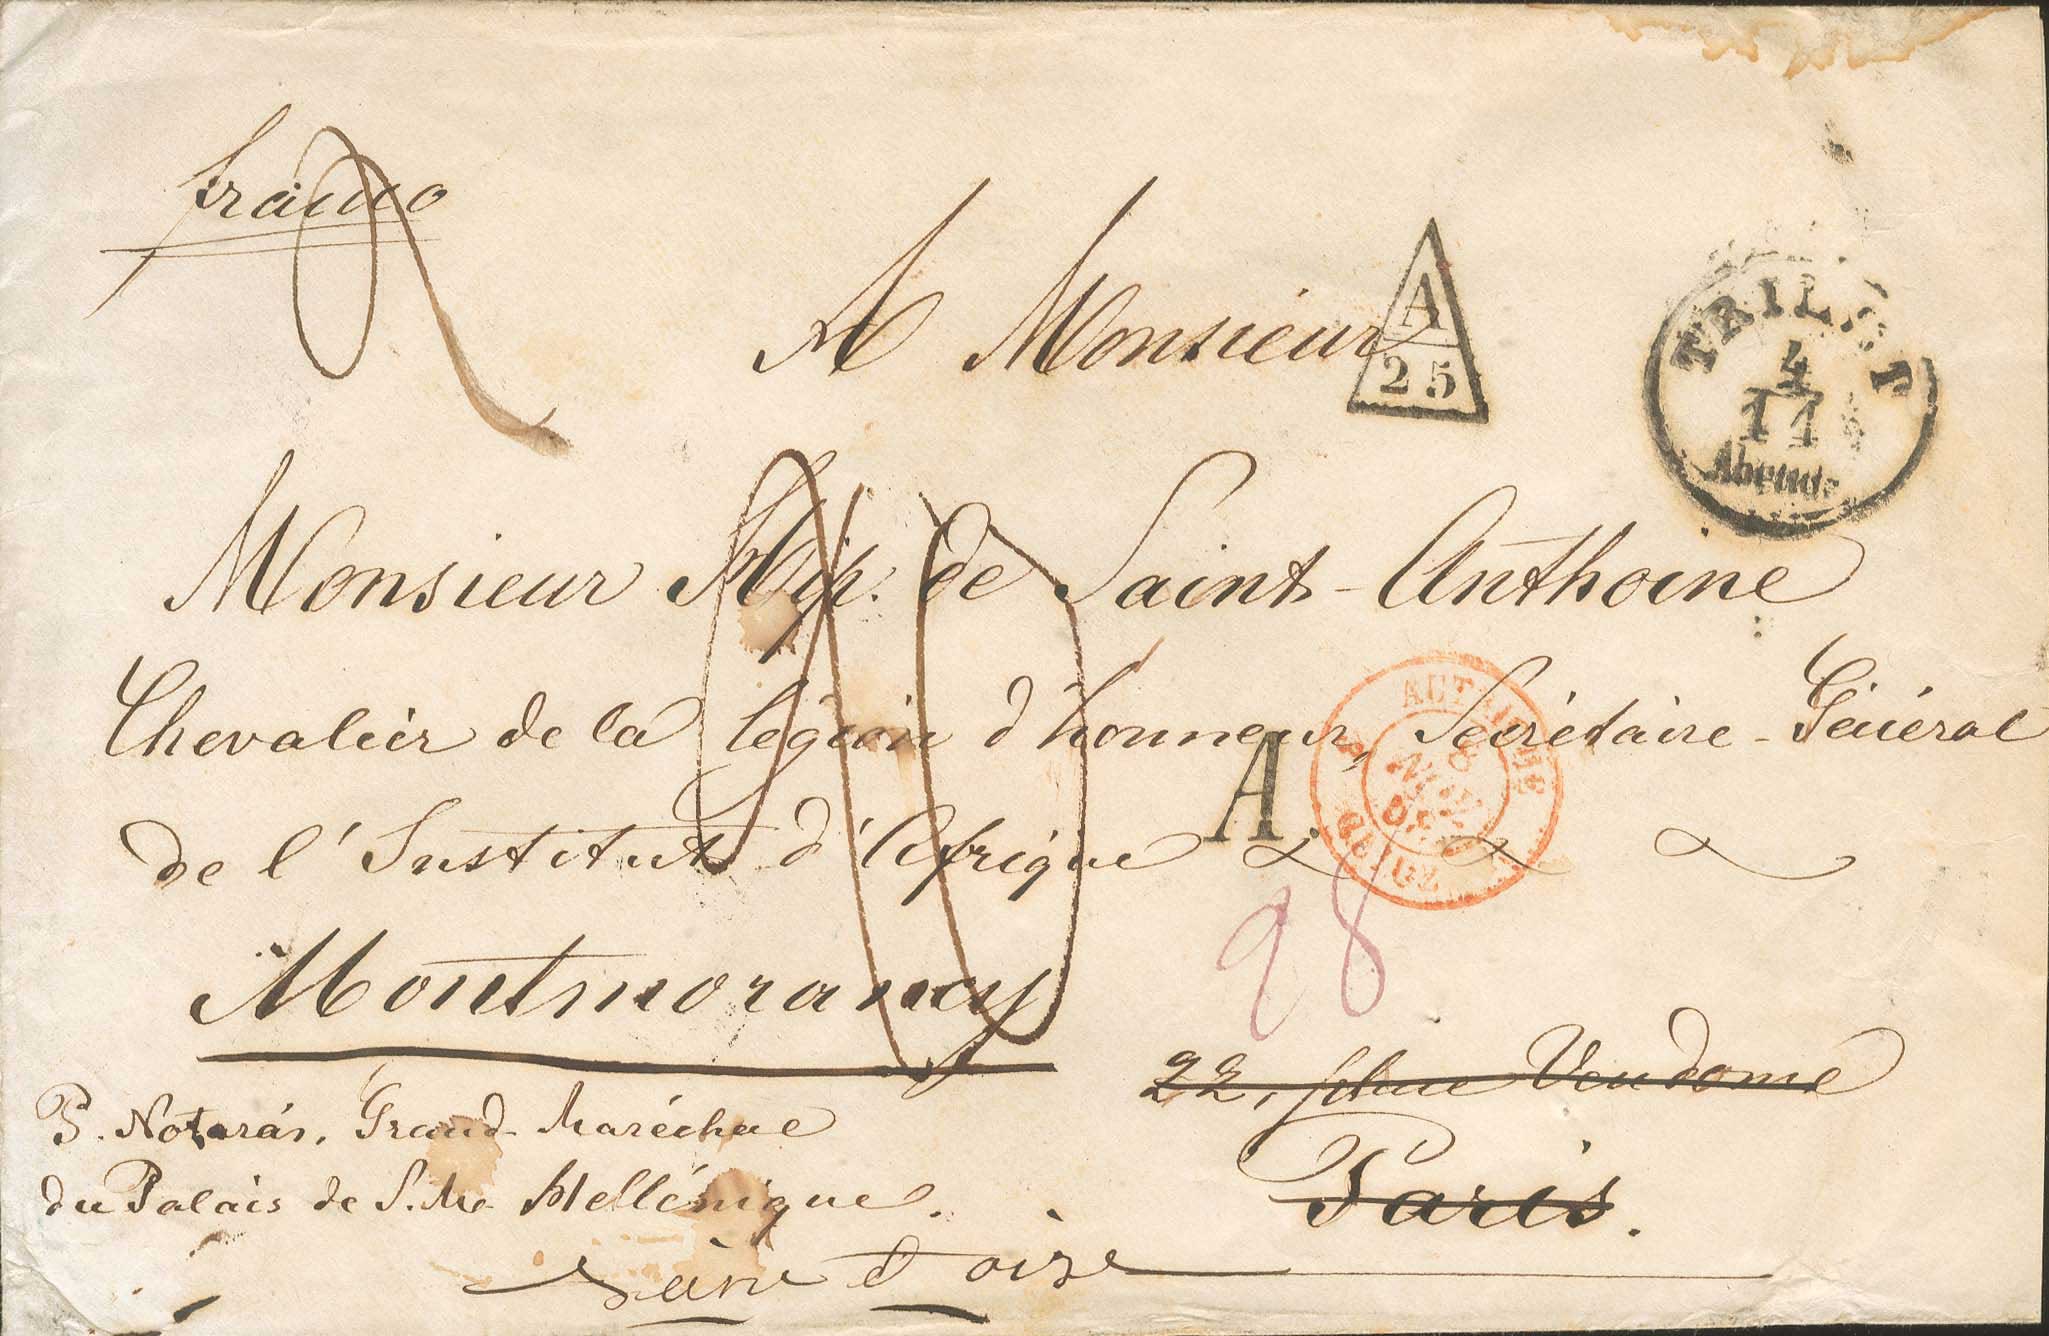 franco
A Monsieur
A
25
TRIEST
4
11
Abends
Monsieur Hip. de Saint-Anthoine
Chevalier de la légion d'honneur, Secrétaire-Général
AUTRICHE
8
NOV.
de l'Institut d'Afrique
A.
28
Montmorancy
22, place Vendome
Paris.
P. Notarás, Grand-Maréchal
du Palais de S. M. Hellénique.
Seine et oise